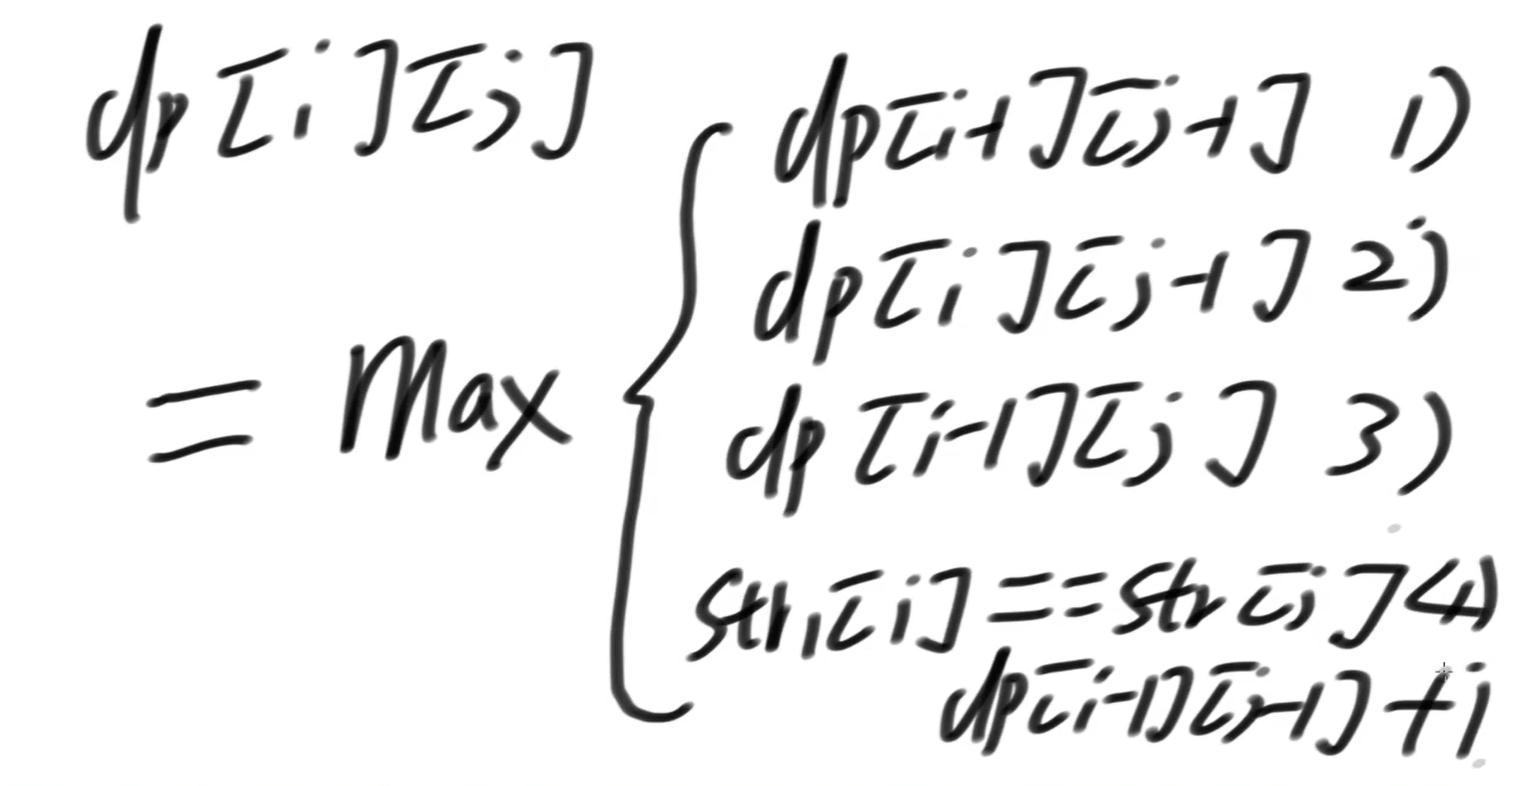 dp[i][j]
= Max
dp[i-1][j-1] 1)
dp[i][j-1] 2)
dp[i-1][j] 3)
str1[i]==str[j] 4)
dp[i-1][j-1]+1